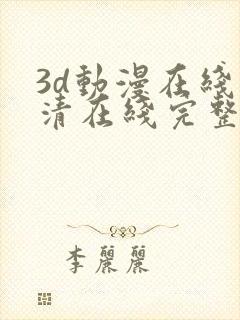 3d動漫在綫
清在綫完整
李麗麗